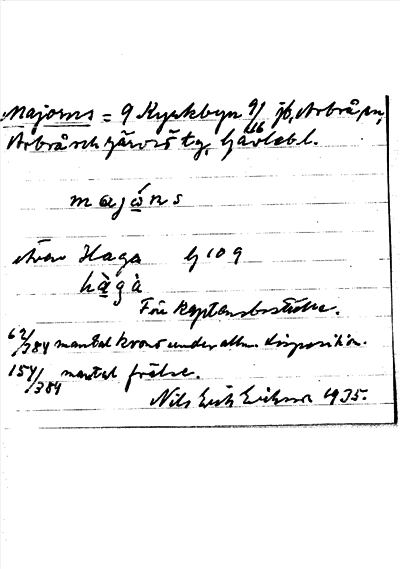 Majorns = 9 Kyrkbyn 9/66 jb, Arbrå sn,
Arbrå och Järvsö tg, Gävlebl.
majóns
även Haga G 109
hàgà
För Kaptensboställe.
62/384 mantal krono under allm. disposition.
154/384 mantal frälse.
Nils Erik Eriksson 1935.